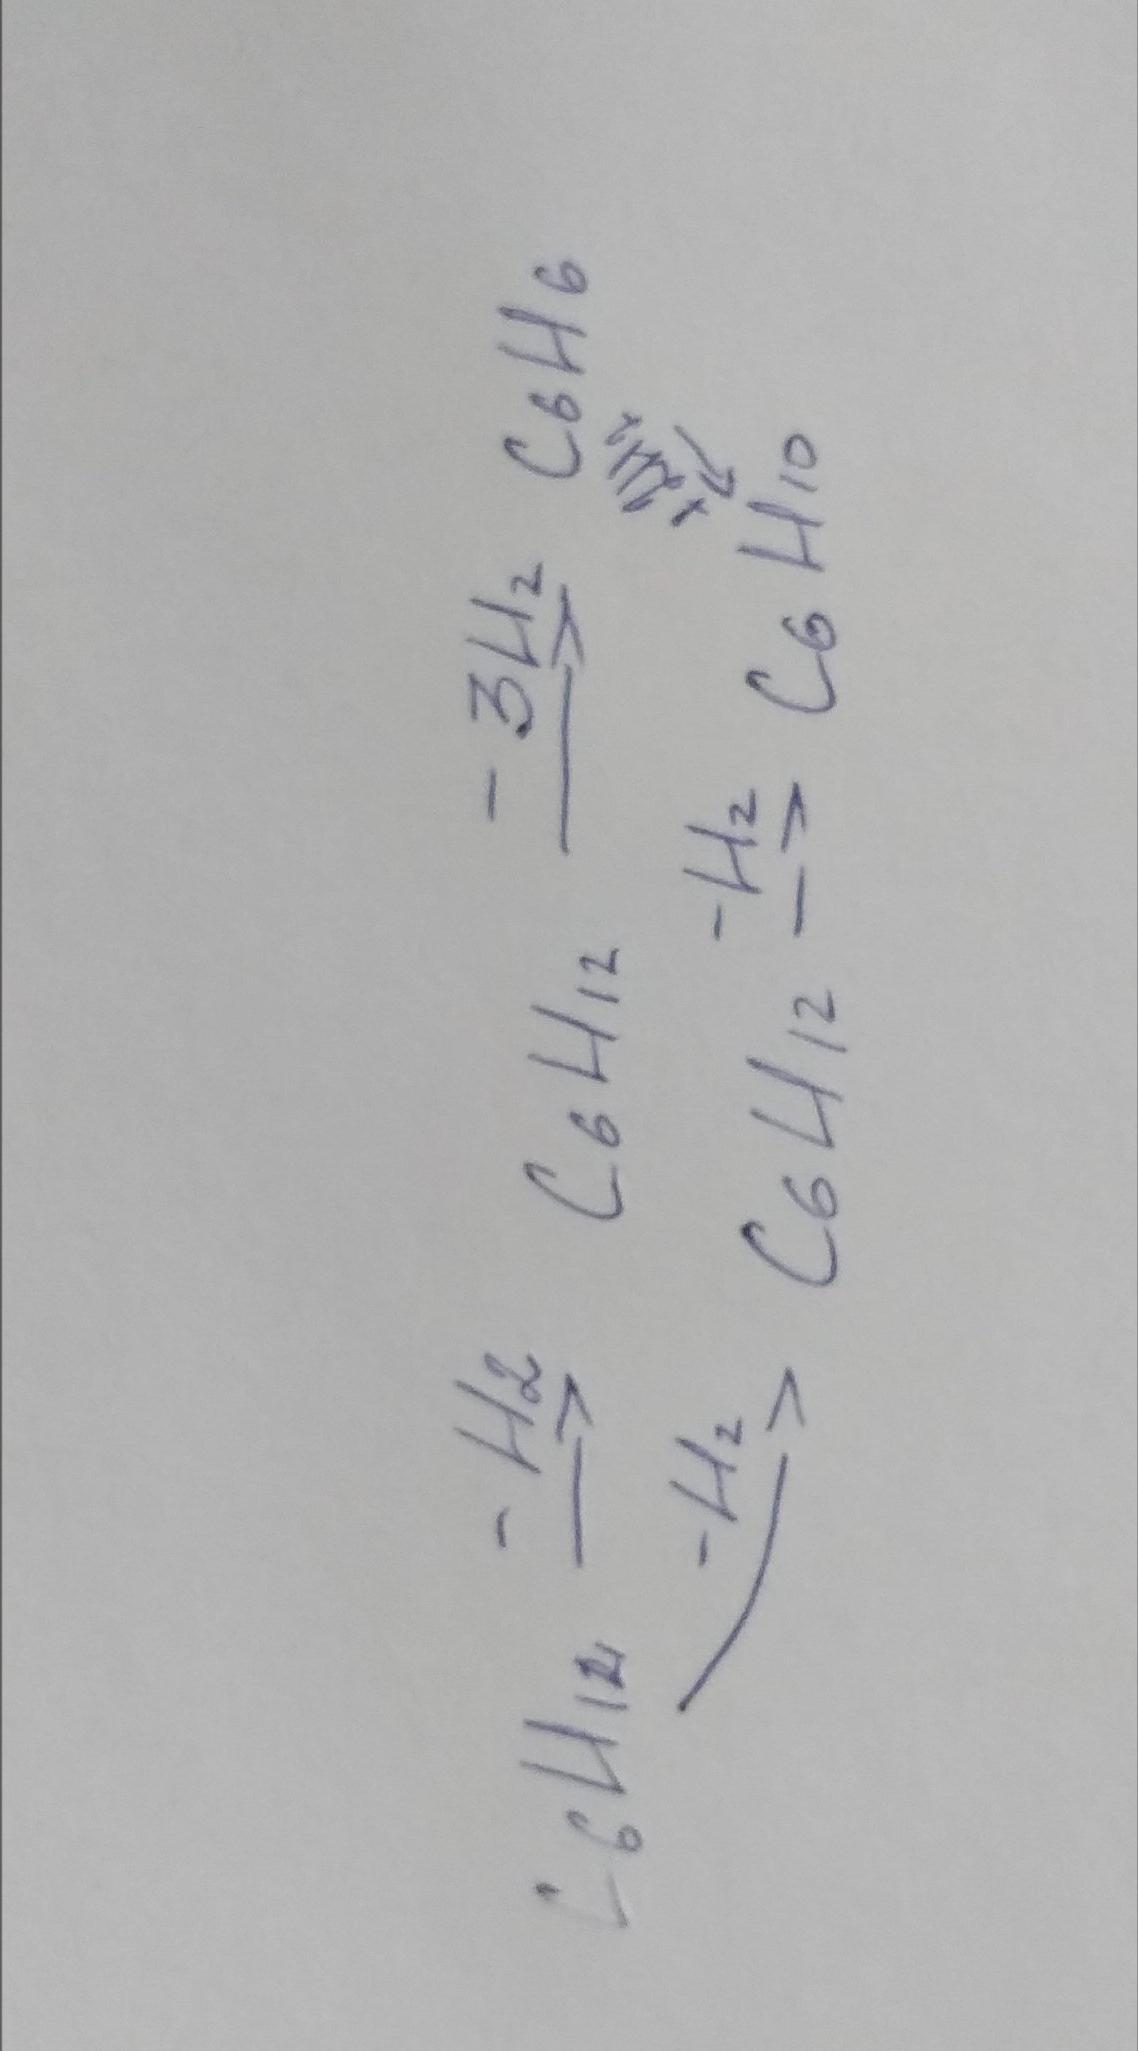 C6H12 -H2→ C6H12 -3H2→ C6H6
-H2→ C6H12 -H2→ C6H10